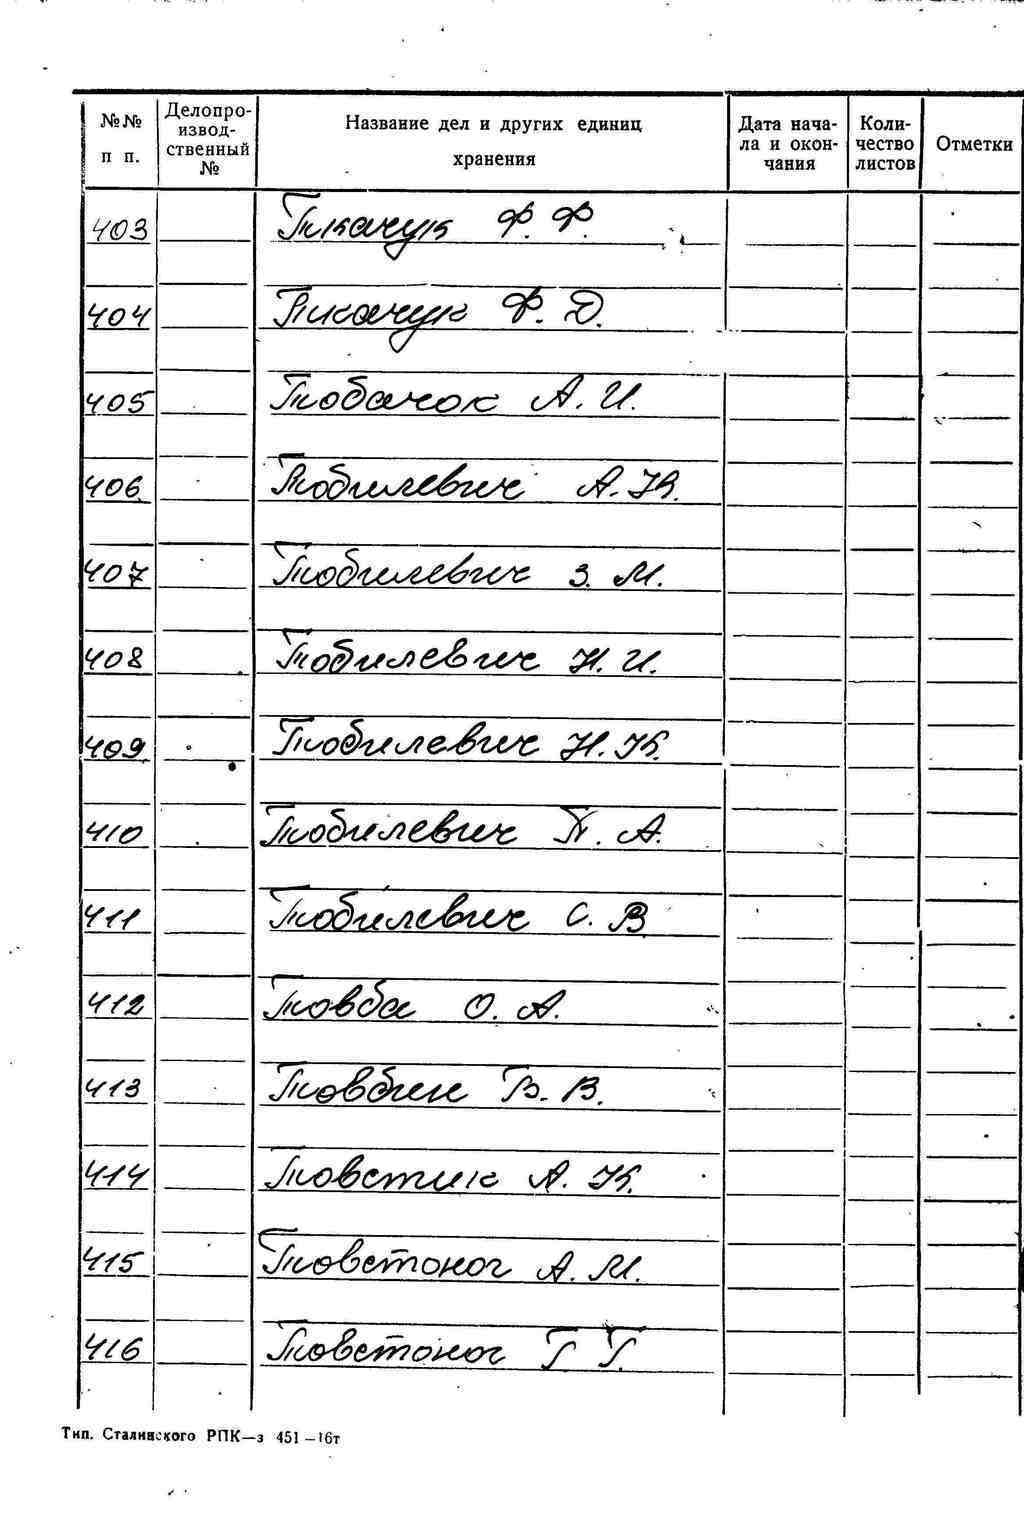 №№ п п. Делопро-извод-ственный № Название дел и других единиц хранения Дата нача-ла и окон-чания Коли-чество листов Отметки
403 Ткачук Ф. Ф.
404 Ткачук Ф. Д.
405 Тобачок А. И.
406 Тобилевич А. К.
407 Тобилевич З. М.
408 Тобилевич Н. И.
409 Тобилевич Н. К.
410 Тобилевич П. А.
411 Тобилевич С. В
412 Товба О. А.
413 Товбин В. В.
414 Товстик А. К.
415 Товстоног А. М.
416 Товстоног Г Г.
Тип. Сталинского РПК—з 451—16т